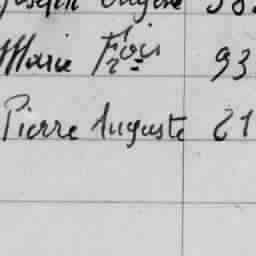 Joseph Eugène 38
Marie Frçois 93
Pierre Auguste 21